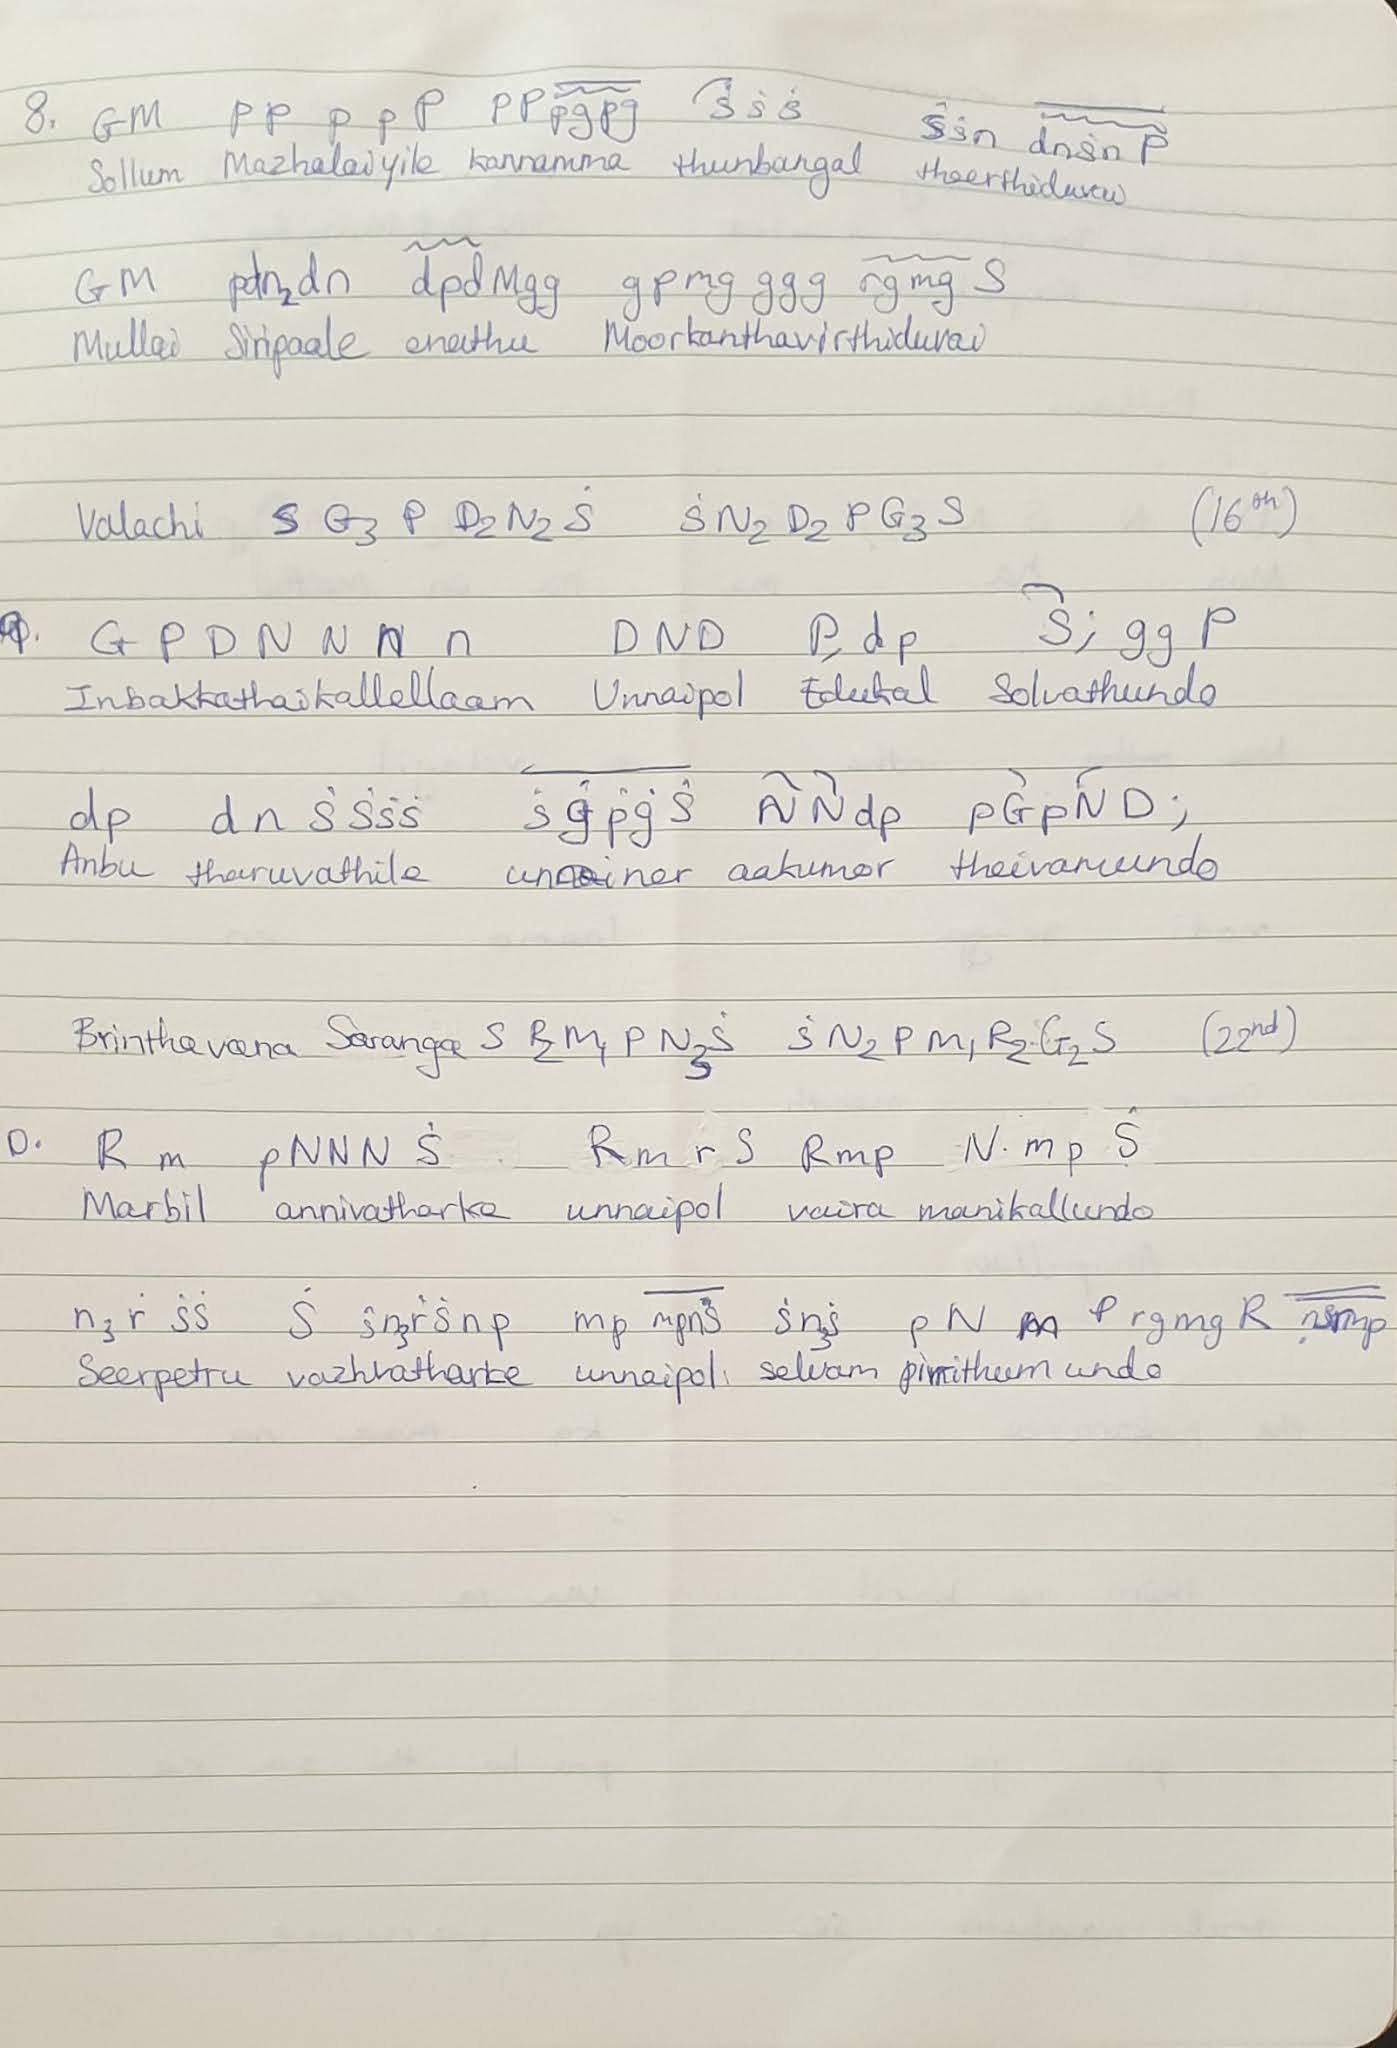 8. GM pp p p P PP pgpg ṡ ṡ ṡ ṡṡn dnṡn P
Sollum Mazhalaiyile kannamma thunbangal theerthiduvai
GM pdn₂dn dpdMgg gpmg ggg rgmg S
Mullai Siripaale enathu Moorkanthavirthiduvai
Valachi S G₃ P D₂N₂Ṡ ṠN₂D₂PG₃S (16th)
9. G P D N N N n DND P, dp Ṡ; gg P
Inbakkathaikallellaam Unnaipol Edukal Solvathundo
dp dn ṡṠṡṡ ṡġṗġṠ NNdp pGpND;
Anbu tharuvathile unnainer aakumor theivamundo
Brinthavana Saranga S R₂M₁PN₃Ṡ ṠN₂PM₁R₂G₂S (22nd)
0. R m pNNN Ṡ R m r S Rmp N mp Ṡ
Marbil annivatharke unnaipol vaira manikallundo
n₃ṙ ṡṡ Ṡ ṡn₃ṙṡnp mp mpnṡ ṡn₃ṡ pN m P rgmg R
Seerpetru vazhvatharke unnaipol selvam pirrithum undo